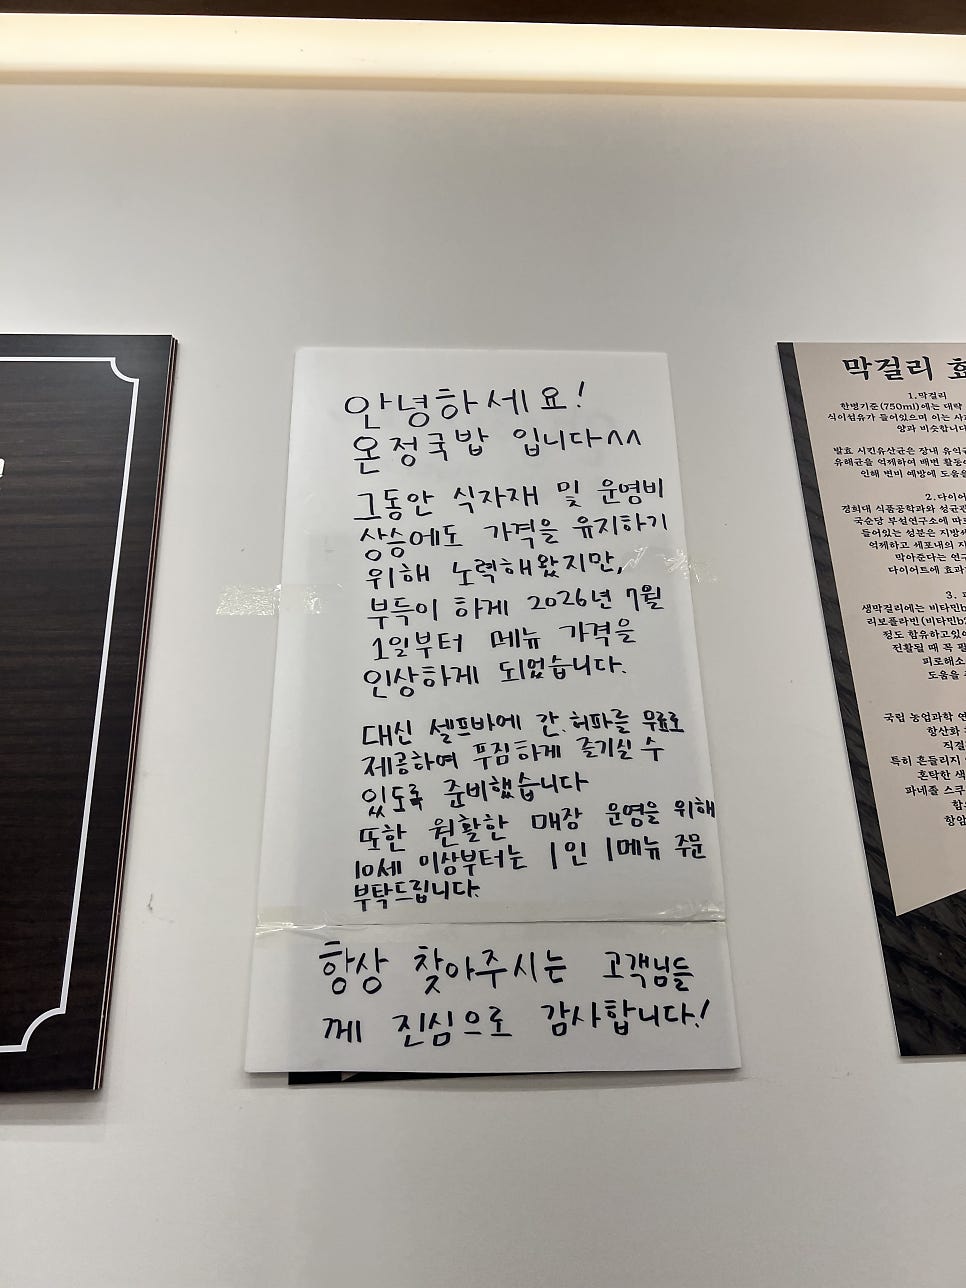 안녕하세요!
온정국밥 입니다^^
그동안 식자재 및 운영비
상승에도 가격을 유지하기
위해 노력해왔지만,
부득이 하게 2026년 7월
1일부터 메뉴 가격을
인상하게 되었습니다.
대신 셀프바에 간.허파를 무료로
제공하여 푸짐하게 즐기실 수
있도록 준비했습니다
또한 원활한 매장 운영을 위해
10세 이상부터는 1인 1메뉴 주문
부탁드립니다.
항상 찾아주시는 고객님들
께 진심으로 감사합니다!
막걸리
1.막걸리
한병기준(750ml)에는 대략
식이섬유가 들어있으며 이는
양과 비슷합니다
발효 시킨유산균은 장내
유해균을 억제하여 배변
인해 변비 예방에
2.
경희대 식품공학과와
국순당 부설연구소에
들어있는 성분은
억제하고 세포내의
막아준다는
다이어트에
3.
생막걸리에는
리보플라빈(비타민
정도 함유하고
전활될 때 꼭
도움을
국립 농업과학
특히 흔들리지
혼탁한 색
파네졸